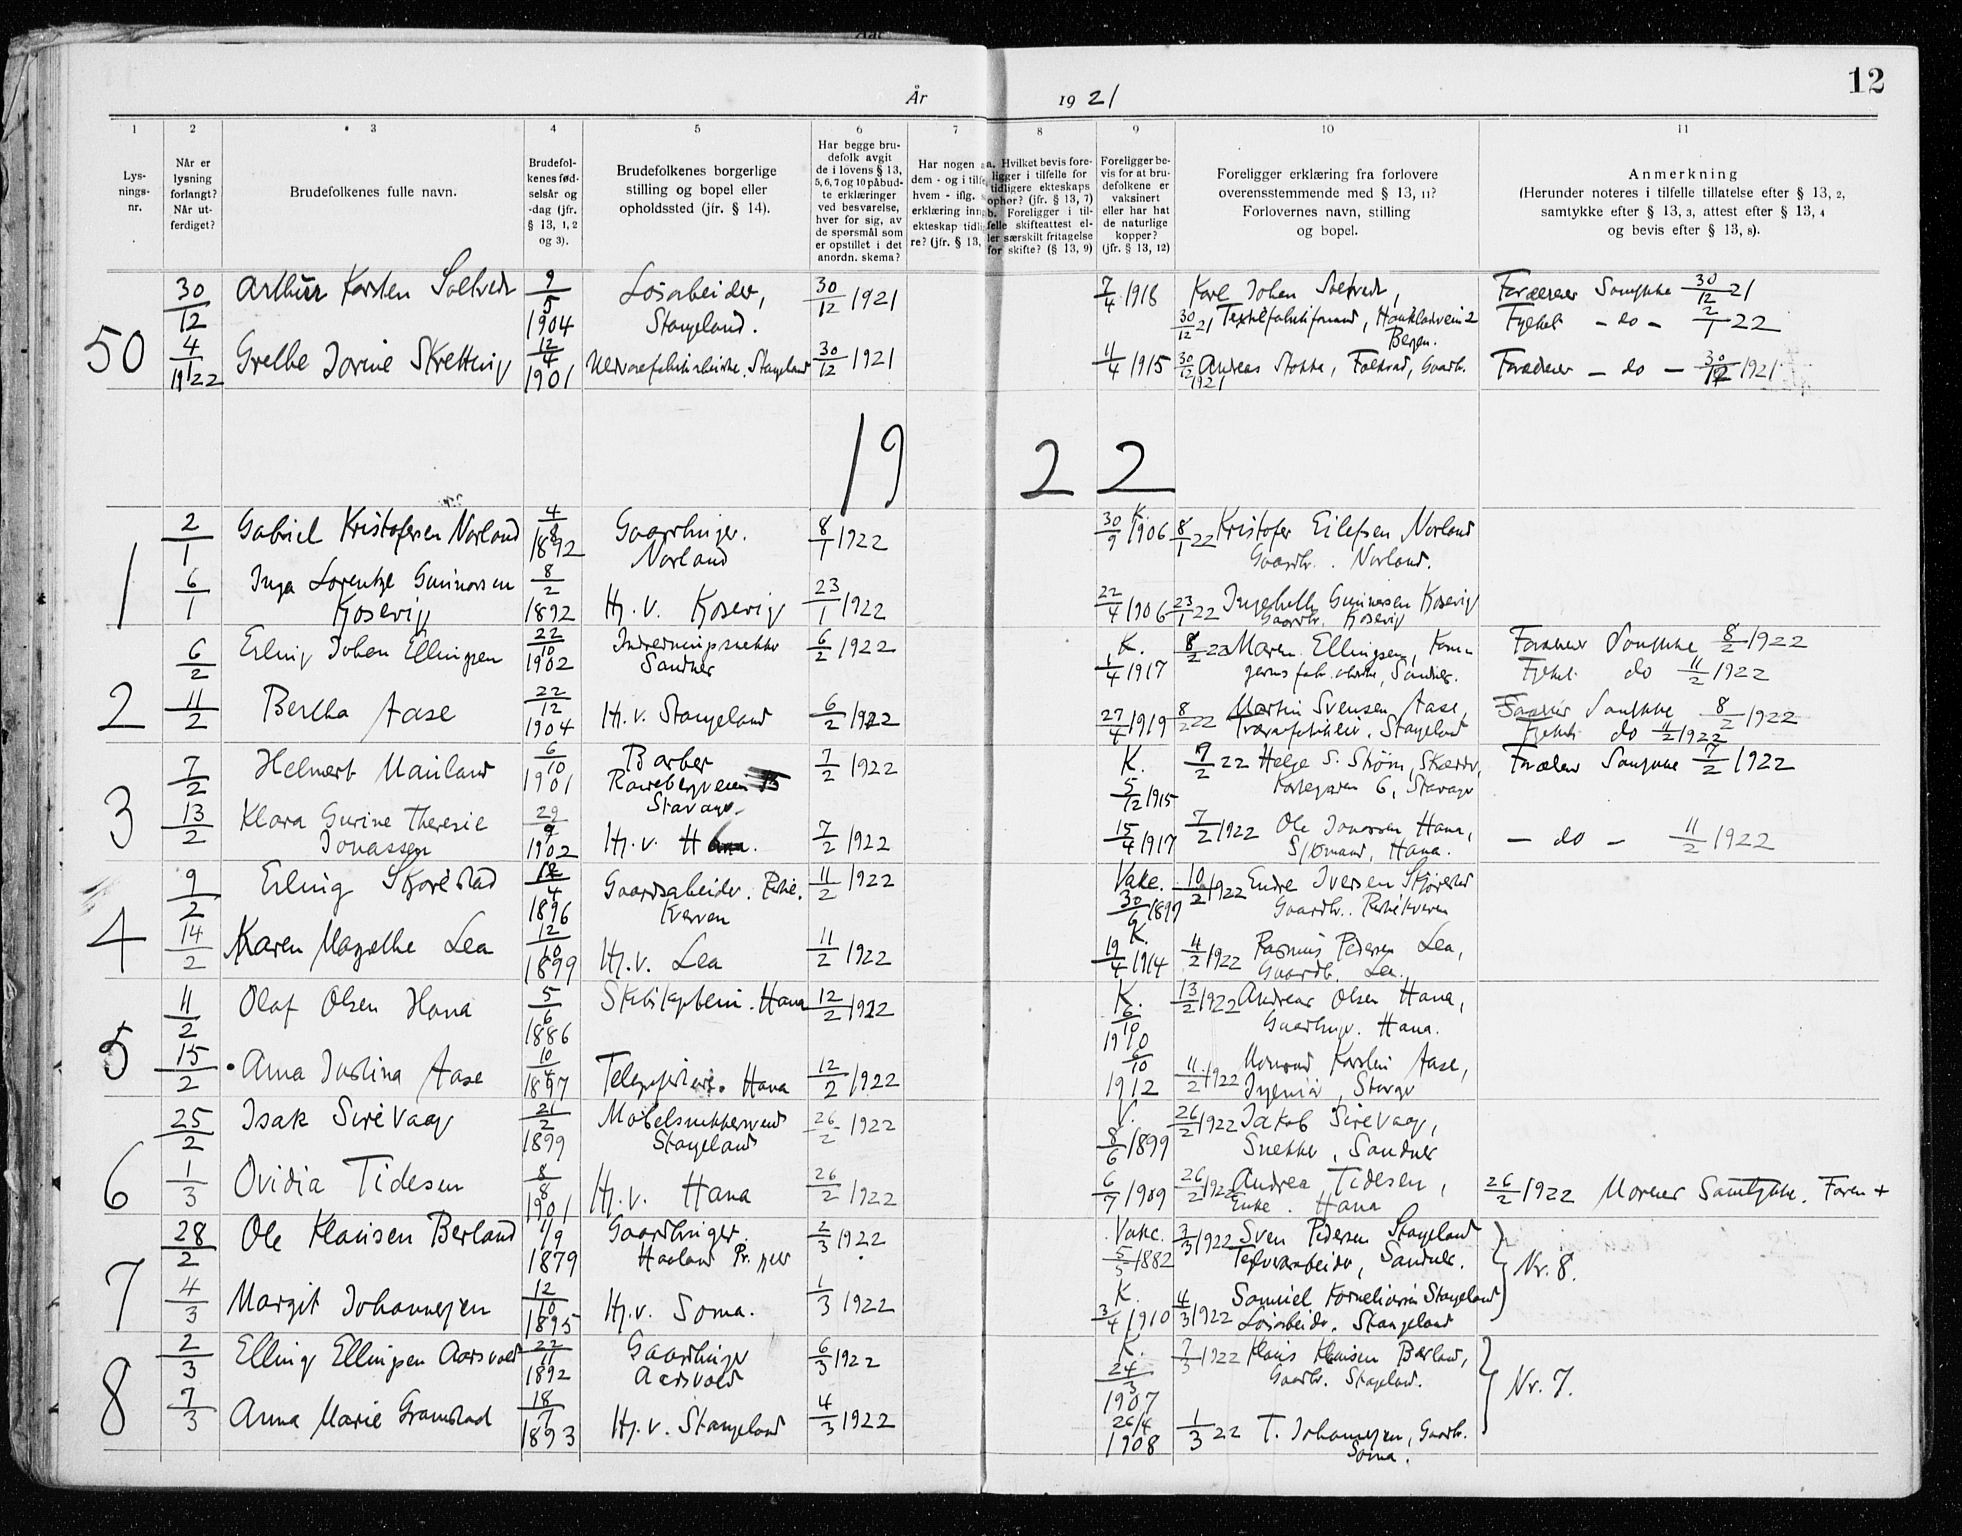 12
År 1921
1 2 3 4 5 6 7 8 9 10 11
Lys-
nings-
nr.
Når er
lysning
forlangt?
Når ut-
ferdiget?
Brudefolkenes fulle navn.
Brudefol-
kenes fød-
selsår og
-dag (jfr.
§ 13, 1, 2
og 3).
Brudefolkenes borgerlige
stilling og bopel eller
opholdssted (jfr. § 14).
Har begge bru-
defolk avgit
de i lovens § 13,
5, 6, 7 og 10 påbud-
te erklæringer
ved besvarelse,
hver for sig, av
de spørsmål som
er opstillet i det
anordn. skema?
Har nogen a
dem - og i tilfe
hvem - iflg.
erklæring inng
ekteskap tidli
re? (jfr. § 13,
a. Hvilket bevis fore-
ligger i tilfelle for
tidligere ekteskaps
ophør? (jfr. § 13, 7)
b. Foreligger i til-
felle skifteattest el-
ler særskilt fritagelse
for skifte? (§ 13, 9)
Foreligger be-
vis for at bru-
defolkene er
vaksinert
eller har hat
de naturlige
kopper?
(jfr. § 13, 12)
Foreligger erklæring fra forlovere
overensstemmende med § 13, 11?
Forlovernes navn, stilling
og bopel.
Anmerkning
(Herunder noteres i tilfelle tillatelse efter § 13, 2,
samtykke efter § 13, 3, attest efter § 13, 4
og bevis efter § 13, 8).
50
30/12 Arthur Karsten Soltvedt 9/5 1904 Løsarbeider, Stangeland. 30/12 1921 7/4 1918 Karl Johan Soltvedt, 30/12 21 Bergen. 30/12 21
Fylket - do - 2/1 22
4/1 1922 Grethe Jorine Skretting 12/4 1901 Stangeland 30/12 1921 11/4 1915 30/12 1921 Andreas Stokke, Gaardb. - do - 30/12 1921
1922
1
2/1 Gabriel Kristofersen Norland 4/8 1892 Gaardbruger. Norland 8/1 1922 K. 30/9 1906 8/1 22 Kristofer Eilefsen Norland
Gaardbr. Norland.
6/1 Inga Lorentze Gunnarsen
Kosevig 8/2 1892 Hj. v. Kosevig 23/1 1922 22/4 1906 23/1 22 Gunnarsen Kosevig
Gaardbr. Kosevig
2
6/2 Erling Johan Ellingsen 22/10 1902 Indredningssnekker Sandnes 6/2 1922 K. 1/4 1917 8/2 22 Maren Ellingsen, Sandnes. Samtykke 8/2 1922
Fylket do 11/2 1922
11/2 Bertha Aase 22/12 1904 Hj. v. Stangeland 6/2 1922 27/4 1919 8/2 22 Martin Svensen Aase, Stangeland Samtykke 8/2 1922
Fylket do 11/2 1922
3
7/2 Helmert Mauland 6/10 1901 Barber Stavager 7/2 1922 K. 5/12 1915 7/2 22 Helge S. Strøm, 6, Stavager Samtykke 7/2 1922
13/2 Klara Gurine Theresie
Jonassen 29/9 1902 Hj. v. Hana. 7/2 1922 15/4 1917 7/2 1922 Ole Jonassen Hana,
Sjømand, Hana. - do - 11/2 1922
4
9/2 Erling Skjørestad 4 1896 Gaardsarbeider. Kverven 11/2 1922 Vakc. 30/6 1897 10/2 1922 Endre Iversen Skjørestad
Gaardbr.
14/2 Karen Magdthe Lea 12/10 1899 Hj. v. Lea 11/2 1922 K. 19/4 1914 4/2 1922 Rasmus Pedersen Lea,
Gaardb. Lea.
5
11/2 Olaf Olsen Hana 5/6 1886 Hana 12/2 1922 K. 6/10 1910 13/2 1922 Andreas Olsen Hana,
Gaardbruger. Hana.
15/2 Anna Justina Aase 10/4 1897 Hana 12/2 1922 6/10 1912 11/2 1922 Karsten Aase,
Ingeniør, Stavgr
6
25/2 Isak Sirevaag 21/2 1899 Møbelsnekkersvend Stangeland 26/2 1922 V. 8/6 1899 26/2 1922 Jakob Sirevaag,
Snekker, Sandnes
1/3 Ovidia Tidesen 8/8 1901 Hj. v. Hana 26/2 1922 6/9 1909 26/2 1922 Andrea Tidesen,
Enke. Hana 26/2 1922 Morens Samtykke. Faren +
7
28/2 Ole Klausen Berland 1/9 1879 Gaardbruger. Haaland 2/3 1922 Vakc. 5/5 1882 3/3 1922 Sven Pedersen Stangeland
Sandnes. Nr. 8.
4/3 Margit Johannesen 12/10 1895 Hj. v. Soma. 1/3 1922 K. 3/4 1910 4/3 1922 Samuel Korneliussen Stangeland
Løsarbeider. Stangeland
8
2/3 Elling Ellingsen Aarsvold 22/11 1892 Gaardbruger Aarsvold 6/3 1922 K. 24/3 1907 7/3 1922 Klaus Klausen Berland,
Gaardbr. Stangeland. Nr. 7.
7/3 Anna Marie Gramstad 18/1 1893 Hj. v. Stangeland 4/3 1922 26/4 1908 1/3 22 T. Johannesen, Gaardbr.
Soma.